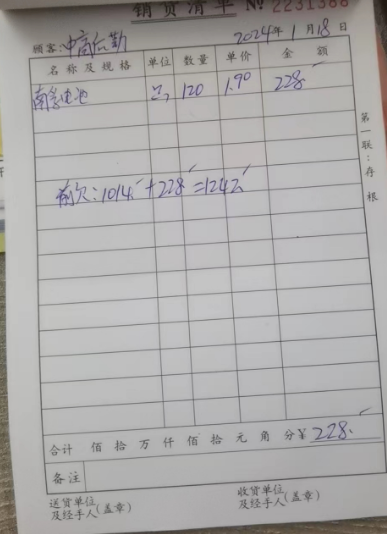 销货清单 № 2231386
2024年 1月 18日
顾客:中商后勤
名称及规格 单位 数量 单价 金额
南孚电池 120 1.90 228.
前欠:1014 + 228 = 1242
第一联:存根
合计 佰 拾 万 仟 佰 拾 元 角 分 ¥ 228.
备注
送货单位
及经手人(盖章)
收货单位
及经手人(盖章)